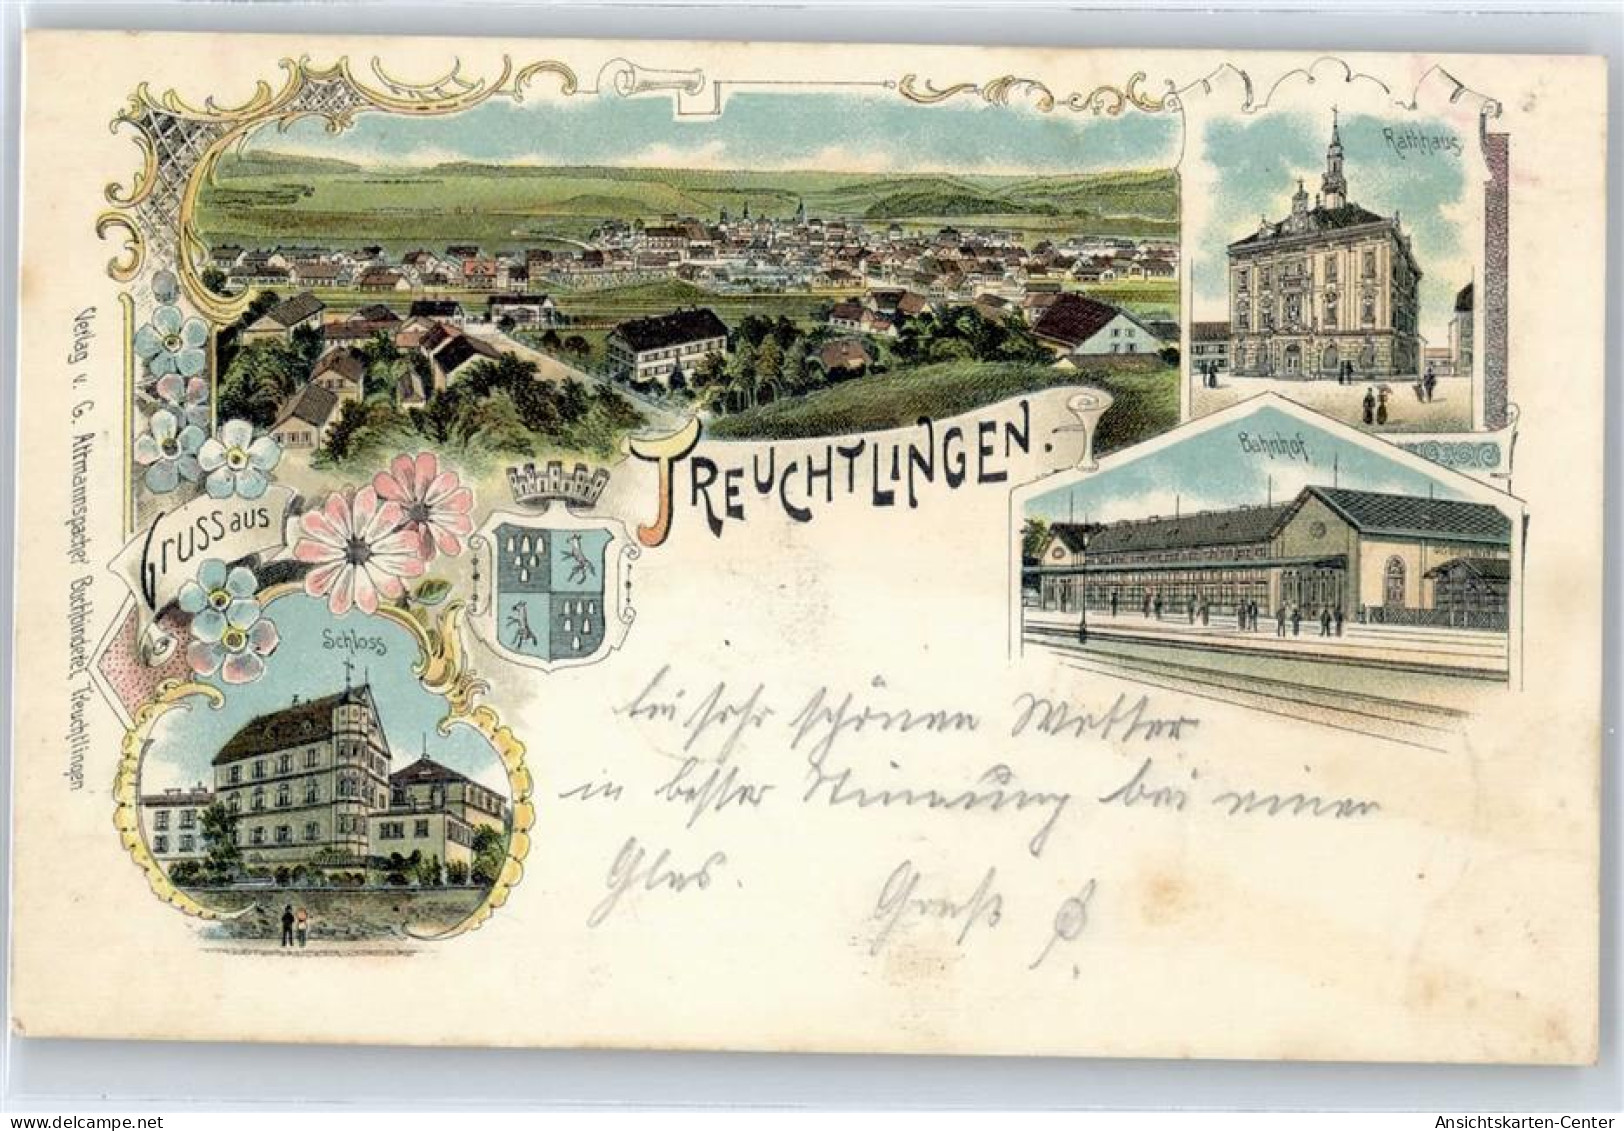 Rathhaus
Bahnhof
TREUCHTLINGEN.
Gruss aus
Schloss
Verlag v. G. Altmannspacher Buchbinderei, Treuchtlingen
bei sehr schönen Wetter
in bester Stimmung bei einen
Glas.
Gruß
Ansichtskarten-Center